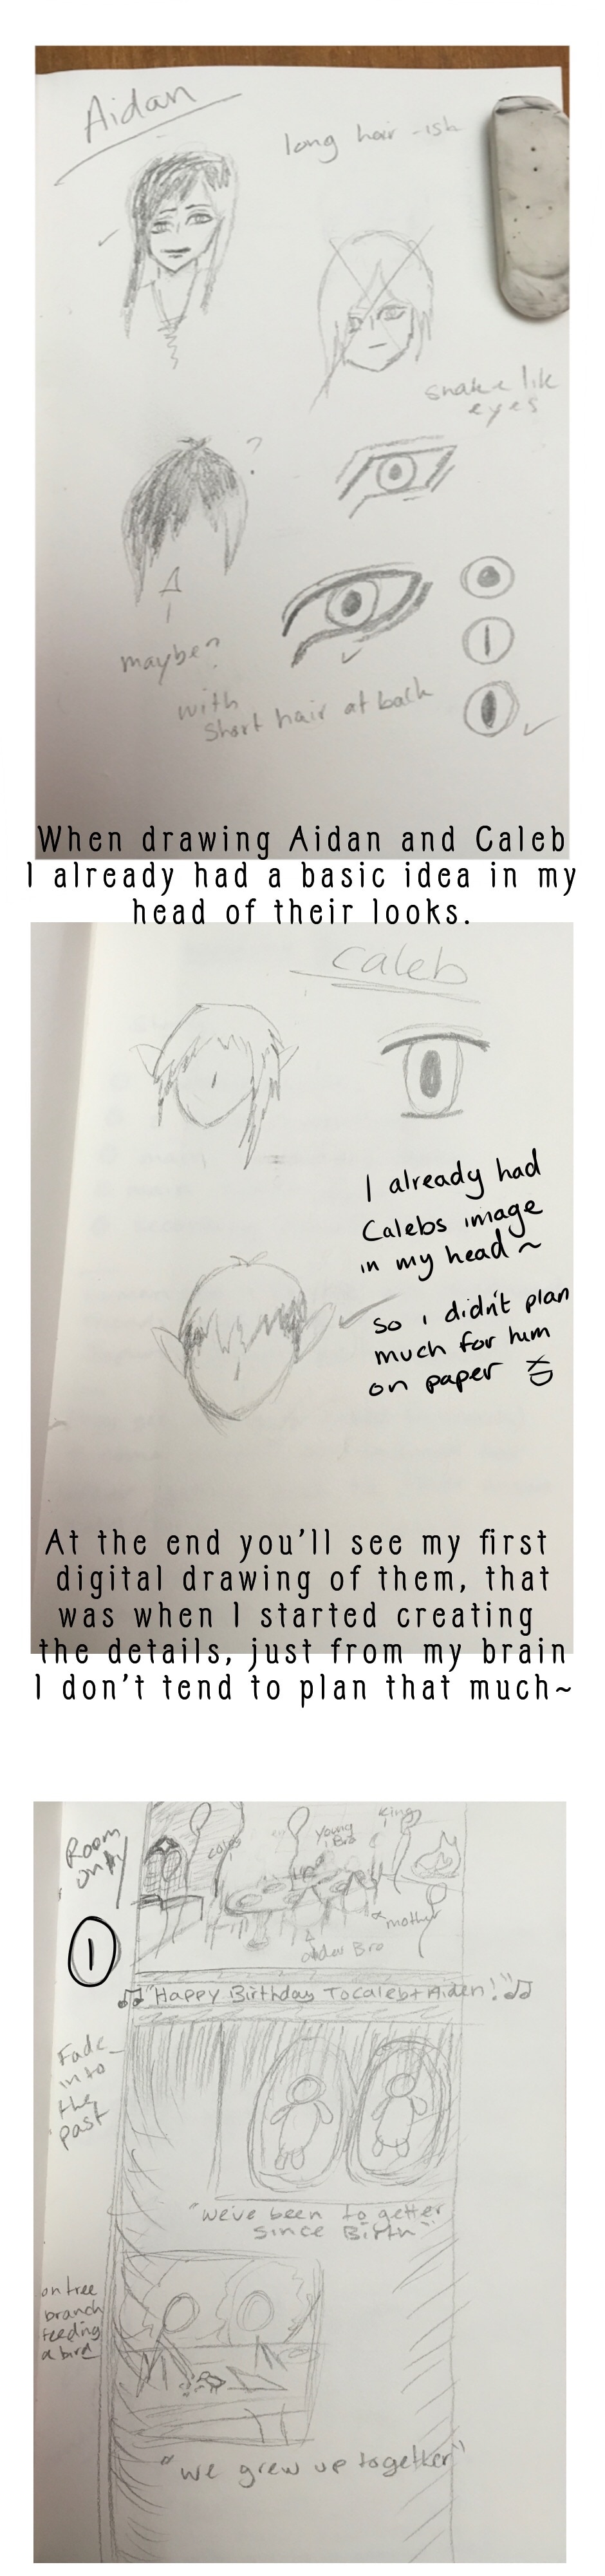 Aidan
long hair -ish
snake like
eyes
?
maybe?
with
short hair at back
When drawing Aidan and Caleb
I already had a basic idea in my
head of their looks.
Caleb
I already had
Calebs image
in my head ~
so i didn't plan
much for him
on paper XD
At the end you'll see my first
digital drawing of them, that
was when I started creating
the details, just from my brain
I don't tend to plan that much~
Room
only
King
Young
Bro
Caleb
mother
older Bro
1
"Happy Birthday To Caleb + Aiden!"
Fade
into
the
past
"We've been together
since Birth"
on tree
branch
feeding
a bird
"we grew up together"